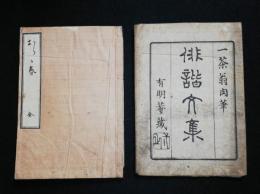 一茶翁肉筆
俳諧文集
有明菴藏
おらが春
全